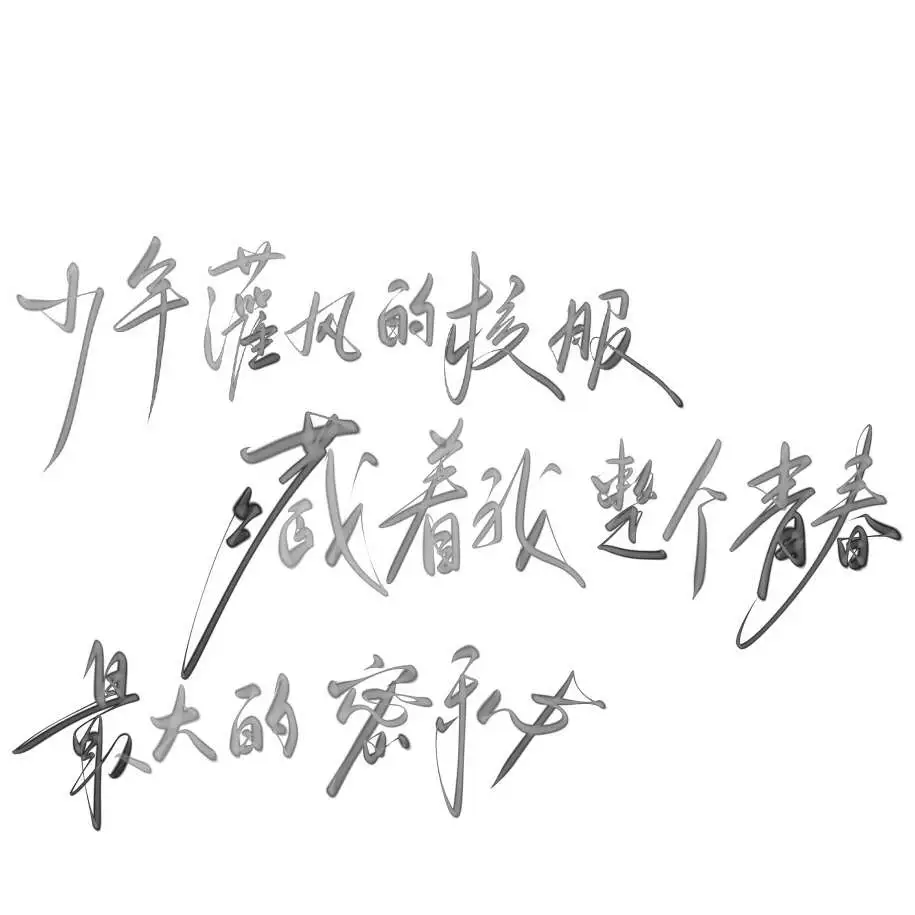 少年灌风的校服
藏着我整个青春
最大的密秘